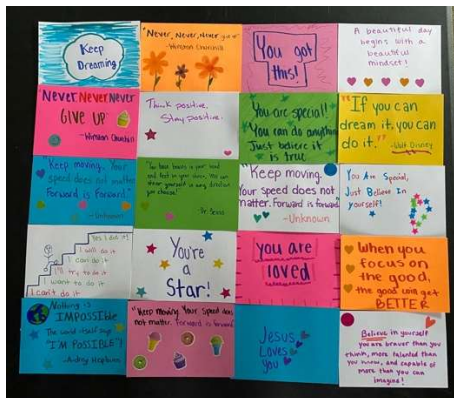 Keep
Dreaming
"Never, Never, Never give up"
-Winston Churchill
You got
this!
A beautiful day
begins with a
beautiful
mindset!
Never Never Never
GIVE UP
-Winston Churchill
Think positive,
Stay positive.
You are special!
You can do anything
Just believe it
is true
"If you can
dream it, you can
do it."
-Walt Disney
Keep moving. Your
speed does not matter
Forward is Forward."
-Unknown
"You have brains in your head
and feet in your shoes, You can
steer yourself in any direction
you choose!
Dr. Seuss
"Keep moving.
Your speed does not
matter. Forward is forward"
-Unknown
You Are Special,
Just Believe In
yourself!
Yes I did it!
I will do it
I can do it
I'll try to do it
I want to do it
I can't do it
You're
a
Star!
You are
loved
When you
focus on
the good,
the good will get
BETTER
Nothing is
IMPOSSIBLE
The world itself says
"I'M POSSIBLE"!
-Audrey Hepburn
"Keep moving. Your Speed does
not matter. Forward is forward"
Jesus
Loves
You
Believe in yourself
you are braver than you
think, more talented than
you know, and capable of
more than you can
imagine!